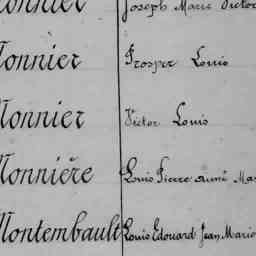 Monnier Joseph Marie Victor
Monnier Prosper Louis
Monnier Victor Louis
Monnière Louis Pierre Aimé
Montembault Louis Edouard Jean Marie